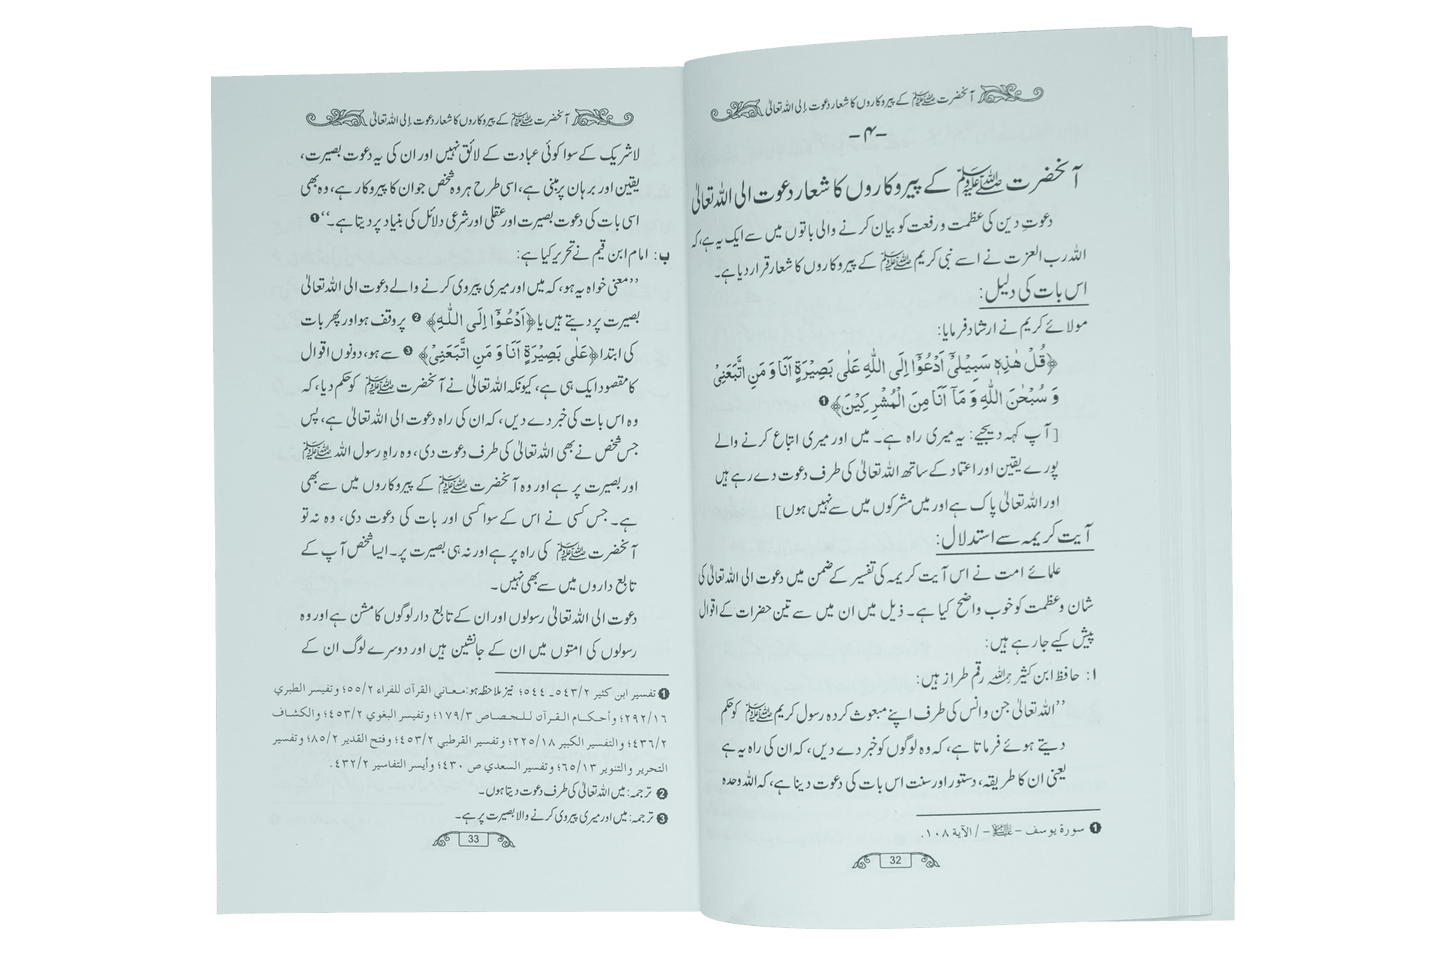 آنحضرت ﷺ کے پیروکاروں کا شعار دعوت إلی اللہ تعالیٰ
-۴-
آنحضرت ﷺ کے پیروکاروں کا شعار دعوت الی اللہ تعالیٰ
دعوتِ دین کی عظمت و رفعت کو بیان کرنے والی باتوں میں سے ایک یہ ہے، کہ
اللہ رب العزت نے اسے نبی کریم ﷺ کے پیروکاروں کا شعار قرار دیا ہے۔
اس بات کی دلیل:
مولائے کریم نے ارشاد فرمایا:
﴿قُلْ هٰذِهٖ سَبِيْلِيْٓ اَدْعُوْٓا اِلَى اللّٰهِ عَلٰى بَصِيْرَةٍ اَنَا وَ مَنِ اتَّبَعَنِيْ
وَ سُبْحٰنَ اللّٰهِ وَ مَآ اَنَا مِنَ الْمُشْرِكِيْنَ﴾❶
[آپ کہہ دیجیے: یہ میری راہ ہے۔ میں اور میری اتباع کرنے والے
پورے یقین اور اعتماد کے ساتھ اللہ تعالیٰ کی طرف دعوت دے رہے ہیں
اور اللہ تعالیٰ پاک ہے اور میں مشرکوں میں سے نہیں ہوں]
آیت کریمہ سے استدلال:
علمائے امت نے اس آیت کریمہ کی تفسیر کے ضمن میں دعوت الی اللہ تعالیٰ کی
شان و عظمت کو خوب واضح کیا ہے۔ ذیل میں ان میں سے تین حضرات کے اقوال
پیش کیے جا رہے ہیں:
ا: حافظ ابن کثیر رحمہ اللہ رقم طراز ہیں:
’’اللہ تعالیٰ جن و انس کی طرف اپنے مبعوث کردہ رسول کریم ﷺ کو حکم
دیتے ہوئے فرماتا ہے، کہ وہ لوگوں کو خبر دے دیں، کہ ان کی راہ یہ ہے
یعنی ان کا طریقہ، دستور اور سنت اس بات کی دعوت دینا ہے، کہ اللہ وحدہ
❶ سورة يوسف - عليه السلام - / الآية ۱۰۸.
32
آنحضرت ﷺ کے پیروکاروں کا شعار دعوت إلی اللہ تعالیٰ
لاشریک کے سوا کوئی عبادت کے لائق نہیں اور ان کی یہ دعوت بصیرت،
یقین اور برہان پر مبنی ہے، اسی طرح ہر وہ شخص جو ان کا پیروکار ہے، وہ بھی
اسی بات کی دعوت بصیرت اور عقلی اور شرعی دلائل کی بنیاد پر دیتا ہے۔‘‘❶
ب: امام ابن قیم نے تحریر کیا ہے:
’’معنی خواہ یہ ہو، کہ میں اور میری پیروی کرنے والے دعوت الی اللہ تعالیٰ
بصیرت پر دیتے ہیں یا ﴿اَدْعُوْٓا اِلَى اللّٰهِ﴾❷ پر وقف ہو اور پھر بات
کی ابتدا ﴿عَلٰى بَصِيْرَةٍ اَنَا وَ مَنِ اتَّبَعَنِيْ﴾❸ سے ہو، دونوں اقوال
کا مقصود ایک ہی ہے، کیونکہ اللہ تعالیٰ نے آنحضرت ﷺ کو حکم دیا، کہ
وہ اس بات کی خبر دے دیں، کہ ان کی راہ دعوت الی اللہ تعالیٰ ہے، پس
جس شخص نے بھی اللہ تعالیٰ کی طرف دعوت دی، وہ راہِ رسول اللہ ﷺ
اور بصیرت پر ہے اور وہ آنحضرت ﷺ کے پیروکاروں میں سے بھی
ہے۔ جس کسی نے اس کے سوا کسی اور بات کی دعوت دی، وہ نہ تو
آنحضرت ﷺ کی راہ پر ہے اور نہ ہی بصیرت پر۔ ایسا شخص آپ کے
تابع داروں میں سے بھی نہیں۔
دعوت الی اللہ تعالیٰ رسولوں اور ان کے تابع دار لوگوں کا مشن ہے اور وہ
رسولوں کی امتوں میں ان کے جانشین ہیں اور دوسرے لوگ ان کے
❶ تفسير ابن كثير ۵۴۳/۲ـ۵۴۴؛ نیز ملاحظہ ہو: معاني القرآن للفراء ۵۵/۲؛ وتفسير الطبري
۲۹۲/۱۶؛ وأحكام القرآن للجصاص ۱۷۹/۳؛ وتفسير البغوي ۴۵۳/۲؛ والكشاف
۴۳۶/۲؛ والتفسير الكبير ۲۲۵/۱۸؛ وتفسير القرطبي ۴۵۳/۲؛ وفتح القدير ۸۵/۲؛ وتفسير
التحرير والتنوير ۶۵/۱۳؛ وتفسير السعدي ص ۴۳۰؛ وأيسر التفاسير ۴۳۲/۲.
❷ ترجمہ: میں اللہ تعالیٰ کی طرف دعوت دیتا ہوں۔
❸ ترجمہ: میں اور میری پیروی کرنے والا بصیرت پر ہے۔
33